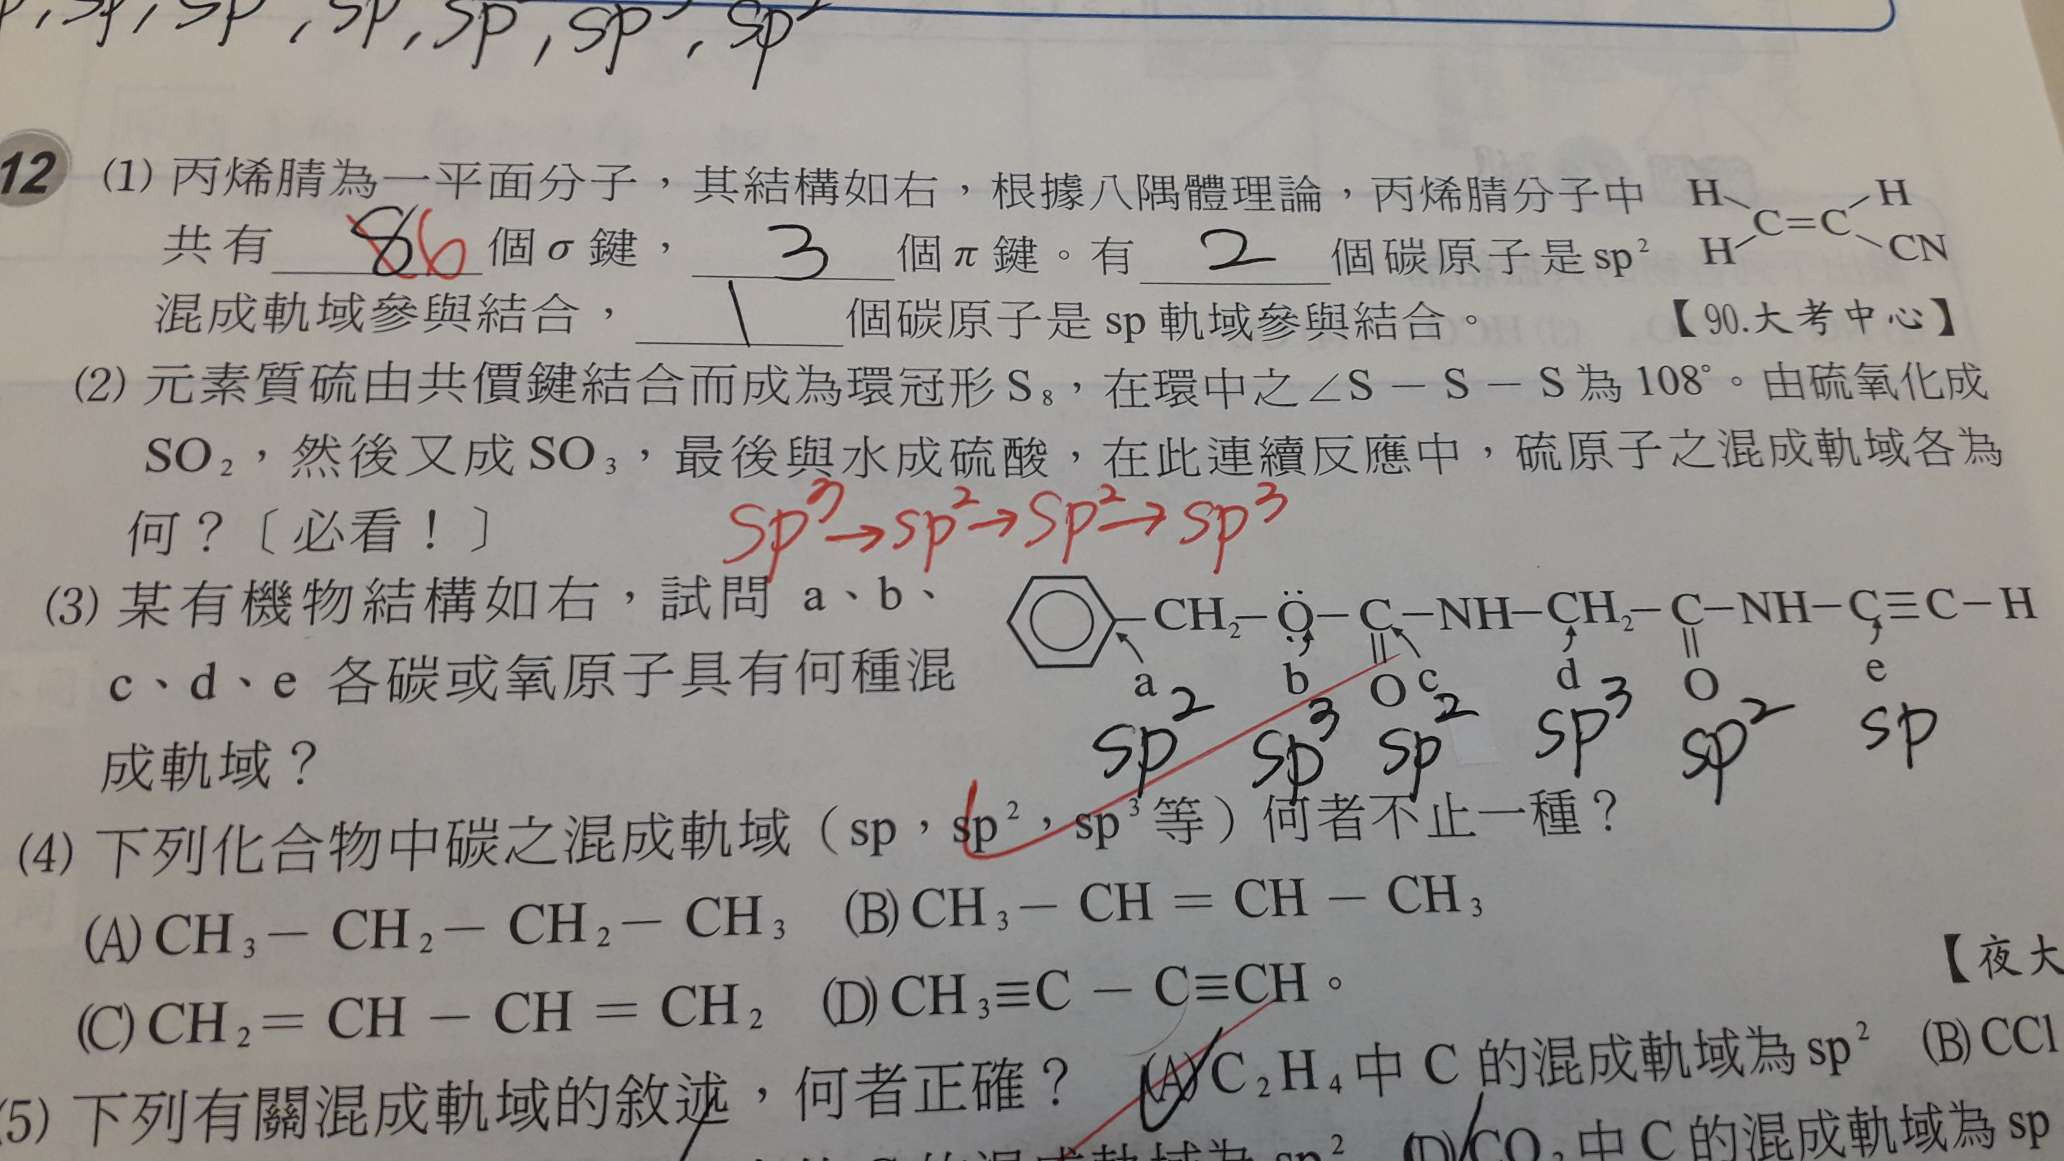 , sp, sp, sp, sp, sp³, sp²
12 (1) 丙烯腈為一平面分子，其結構如右，根據八隅體理論，丙烯腈分子中
共有 8 6 個σ鍵， 3 個π鍵。有 2 個碳原子是sp²
混成軌域參與結合， 1 個碳原子是 sp 軌域參與結合。 【90.大考中心】
H H
C=C
H CN
(2) 元素質硫由共價鍵結合而成為環冠形S₈，在環中之∠S－S－S為108°。由硫氧化成
SO₂，然後又成SO₃，最後與水成硫酸，在此連續反應中，硫原子之混成軌域各為
何？〔必看！〕 sp³→sp²→sp²→sp³
(3) 某有機物結構如右，試問 a、b、
c、d、e 各碳或氧原子具有何種混
成軌域？
－CH₂－O－C－NH－CH₂－C－NH－C≡C－H
a b O c d O e
sp² sp³ sp² sp³ sp² sp
(4) 下列化合物中碳之混成軌域（sp，sp²，sp³等）何者不止一種？
(A)CH₃－CH₂－CH₂－CH₃ (B)CH₃－CH＝CH－CH₃
(C)CH₂＝CH－CH＝CH₂ (D)CH₃≡C－C≡CH。 【夜大
(5) 下列有關混成軌域的敘述，何者正確？ (A)C₂H₄中C的混成軌域為sp² (B)CCl
C的混成軌域為sp² (D)CO₂中C的混成軌域為sp